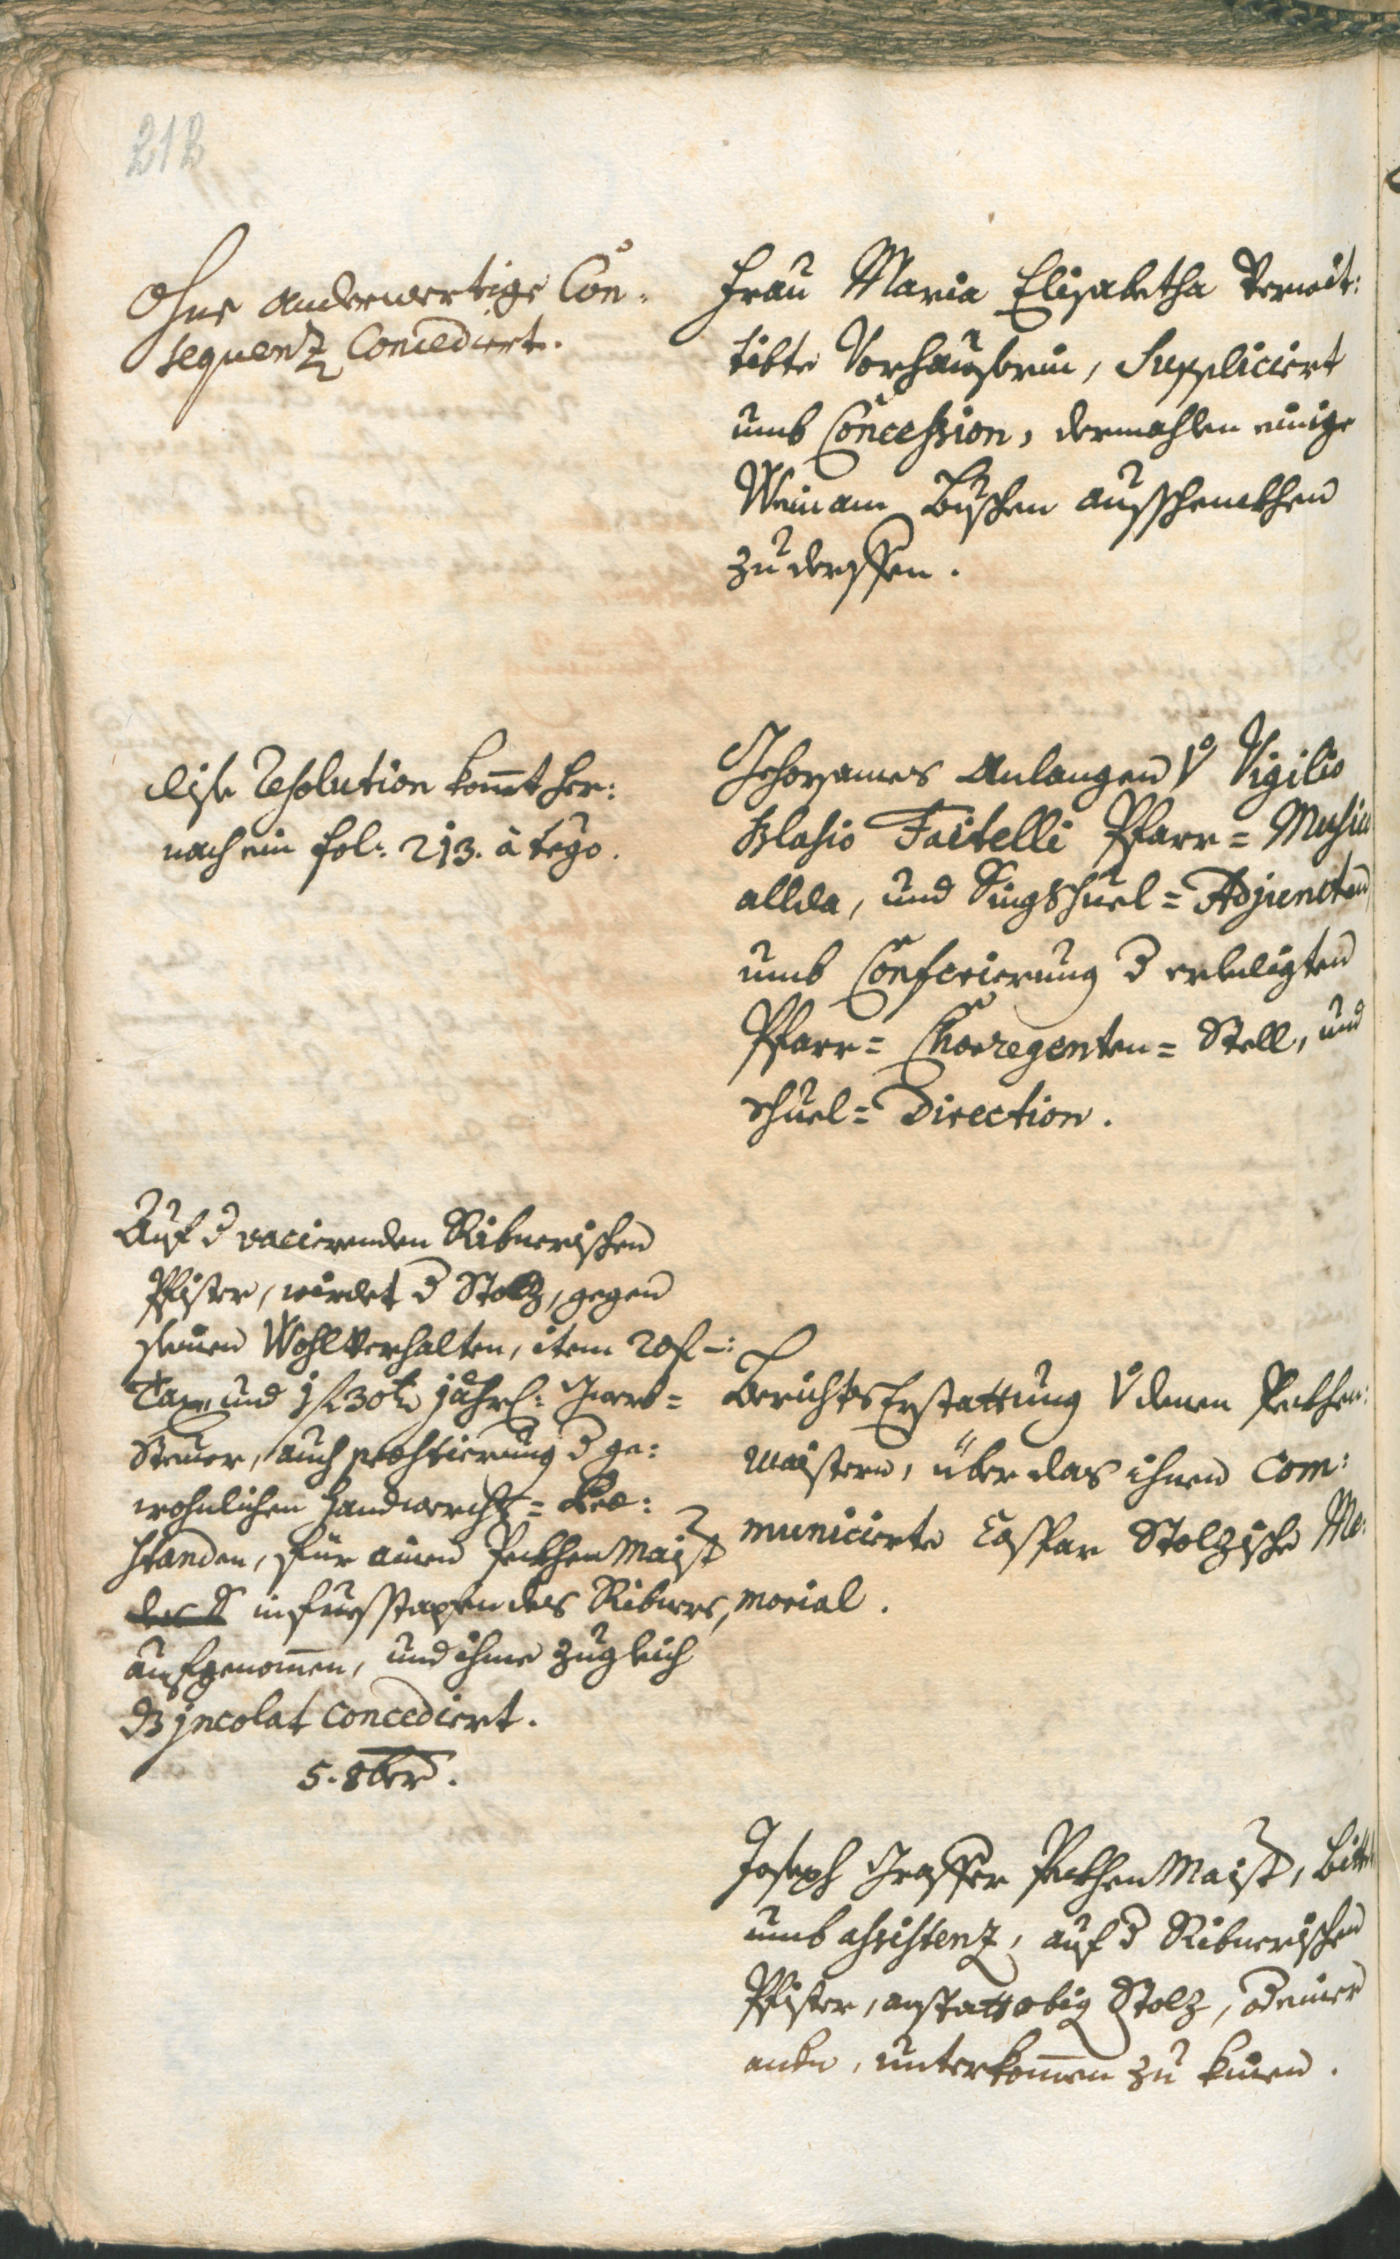 212
Ohne anderwertige Con¬
sequenz Concediert.
Frau Maria Elisabetha verwit:
tibte Vorhauserin, Suppliciert
umb Concession, dermahlen einige
Wein am Buschen ausschenckhen
zu derffen.
dise Resolution komt her:
nach ein fol: 213. à tergo.
Gehorsames Anlangen v Vigilio
Blasio Faitelli Pfarr= Musico
allda, und Singschuel= Adjuncten
umb Conferierung d erledigten
Pfarr= Choregenten= Stell, und
Schuel= Direction.
Auf d vacierenden Ribnerischen
Pfister, wirdet d Stolz, gegen
seinen Wohlverhalten, item 20 f –:
Tax und 1 f 30 kr jährl: Gwerb=
Steuer, auch prästierung d ge:
wohnlichen Handwerchs= Prae:
standen, für einen Peckhen Maist
des S in fuesstapfen des Ribners,
aufgenommen, und ihme zugleich
dz jncolat concediert.
5. 8ber.
Berichts Erstattung v denen Peckhen:
maistern, über das ihnen com:
municierte Caspar Stolzische Me:
morial.
Joseph Grasser Peckhen Maist, bitt
umb assistenz, auf d Ribnerischen
Pfister, anstatt obig Stolz, od einer
andn, unterkommen zu kinen.